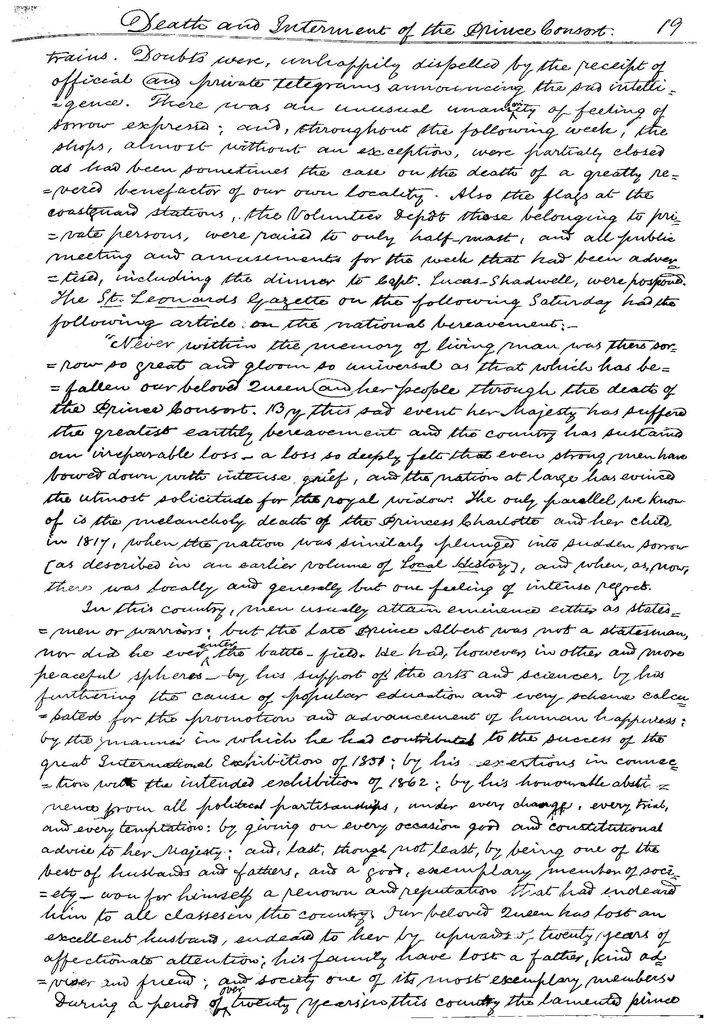 Death and Interment of the Prince Consort. 19
trains. Doubts were, unhappily dispelled by the receipt of
official and private telegrams announcing the sad intelli-
=gence. There was an unusual unanimity of feeling of
sorrow expressed; and, throughout the following week, the
shops, almost without an exception, were partially closed
as had been sometimes the case on the death of a greatly re-
=vered benefactor of our own locality. Also the flags at the
coastguard stations, the Volunteer Depôt those belonging to pri-
=vate persons, were raised to only half-mast, and all public
meeting and amusements for the week that had been adver-
=tised, including the dinner to Capt. Lucas-Shadwell, were postponed.
The St. Leonards Gazette on the following Saturday had the
following article on the national bereavement:-
"Never within the memory of living man was there sor-
=row so great and gloom so universal as that which has be-
=fallen our beloved Queen and her people through the death of
the Prince Consort. By this sad event her Majesty has suffered
the greatest earthly bereavement and the country has sustained
an irreparable loss – a loss so deeply felt that even strong men have
bowed down with intense grief, and the nation at large has evinced
the utmost solicitude for the royal widow. The only parallel we know
of is the melancholy death of the Princess Charlotte and her child
in 1817, when the nation was similarly plunged into sudden sorrow
[as described in an earlier volume of Local History], and when, as, now,
there was locally and generally but one feeling of intense regret.
In this country, men usually attain eminence either as states-
=men or warriors; but the late Prince Albert was not a statesman,
nor did he ever enter the battle-field. He had, however, in other and more
peaceful spheres – by his support of the arts and sciences, by his
furthering the cause of popular education and every scheme calcu
=lated for the promotion and advancement of human happiness;
by the manner in which he had contributed to the success of the
great International Exhibition of 1851; by his exertions in connec-
=tion with the intended exhibition of 1862; by his honourable absti-
=nence from all political partisanships, under every change, every trial,
and every temptation: by giving on every occasion good and constitutional
advice to her Majesty; and, last, though not least, by being one of the
best of husbands and fathers, and a good, exemplary member of soci-
=ety – won for himself a renown and reputation that had endeared
him to all classes in the country. Our beloved Queen has lost an
excellent husband, endeared to her by upwards of twenty years of
affectionate attention; his family have lost a father, kind ad-
=viser and friend; and society one of its most exemplary members
During a period of over twenty years in this country the lamented prince